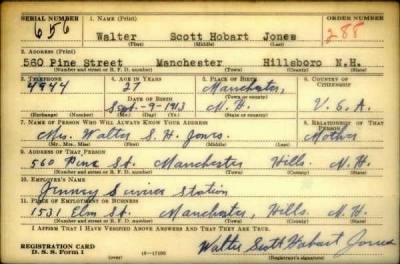 SERIAL NUMBER 1. NAME (Print) ORDER NUMBER
656 Walter Scott Hobart Jones 288
(First) (Middle) (Last)
2. ADDRESS (Print)
560 Pine Street Manchester Hillsboro N.H.
(Number and street or R. F. D. number) (Town) (County) (State)
3. TELEPHONE 4. AGE IN YEARS 5. PLACE OF BIRTH 6. COUNTRY OF CITIZENSHIP
4944 27 Manchester,
DATE OF BIRTH (Town or county)
Sept.-9-1913 N.H. U.S.A.
(Mo.) (Day) (Yr.) (State or country)
7. NAME OF PERSON WHO WILL ALWAYS KNOW YOUR ADDRESS 8. RELATIONSHIP OF THAT PERSON
Mrs. Walter S. H. Jones. Mother
(Mr., Mrs., Miss) (First) (Middle) (Last)
9. ADDRESS OF THAT PERSON
560 Pine St. Manchester Hills. N.H.
(Number and street or R. F. D. number) (Town) (County) (State)
10. EMPLOYER'S NAME
Jenney Service Station
11. PLACE OF EMPLOYMENT OR BUSINESS
1531 Elm St. Manchester, Hills. N.H.
(Number and street or R. F. D. number) (Town) (County) (State)
I AFFIRM THAT I HAVE VERIFIED ABOVE ANSWERS AND THAT THEY ARE TRUE.
REGISTRATION CARD
D. S. S. Form 1 Walter Scott Hobart Jones
(Registrant's signature)